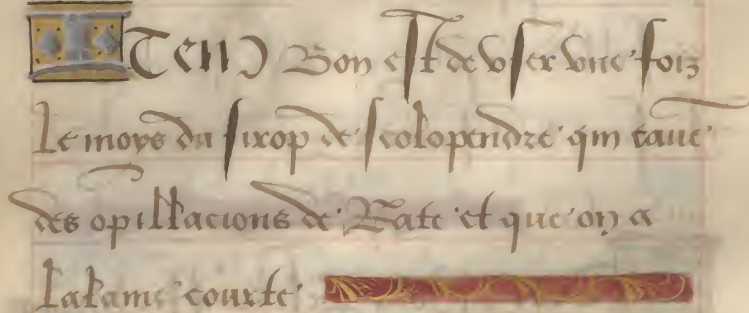 ITem Bon est de vser vne foiz
Le moys du sirop de scolopendre qm cause
des opillacions de Rate et que on a
Lalame courte